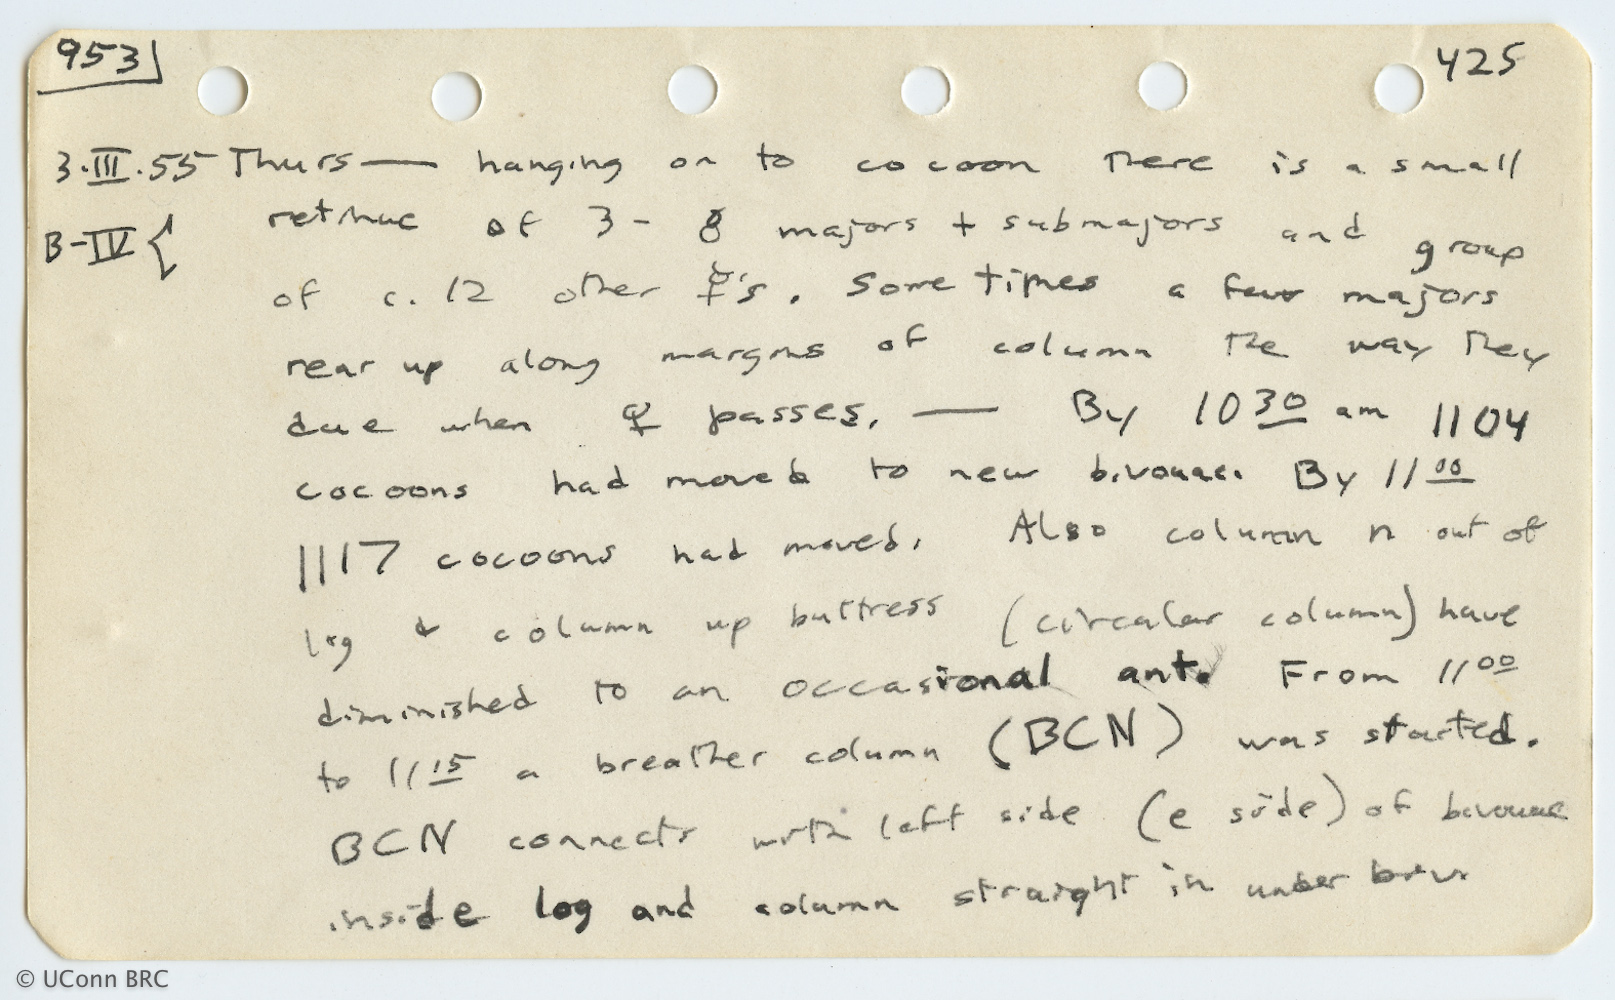 953 425
3.III.55 Thurs — hanging on to cocoon there is a small
B-IV { retinue of 3-8 majors + submajors and group
of c. 12 other ☿'s. Sometimes a few majors
rear up along margins of column the way they
due when ♀ passes. — By 10 30 am 1104
cocoons had moved to new bivouac. By 11 00
1117 cocoons had moved. Also column n out of
log & column up buttress (circular column) have
diminished to an occasional ant. From 11 00
to 11 15 a breather column (BCN) was started.
BCN connects with left side (e side) of bivouac
inside log and column straight in under bivv.
© UConn BRC